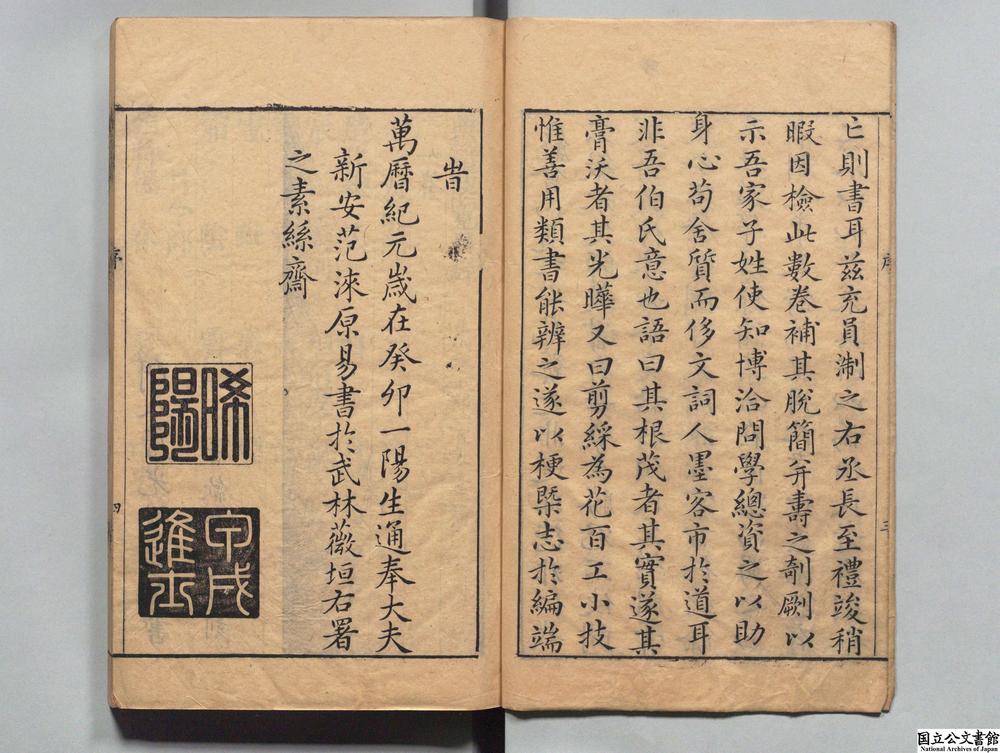 亡則書耳茲充員淛之右丞長至禮竣稍
暇因檢此數卷補其脫簡弁壽之剞劂以
示吾家子姓使知博洽問學總資之以助
身心苟舍質而侈文詞人墨客市於道耳
非吾伯氏意也語曰其根茂者其實遂其
膏沃者其光曄又曰剪綵為花百工小技
惟善用類書能辨之遂以梗槩志於編端
旹
萬曆紀元嵗在癸卯一陽生通奉大夫
新安范淶原易書於武林薇垣右署
之素絲齋
晞陽
甲戌進士
序
三
序
四
国立公文書館
National Archives of Japan